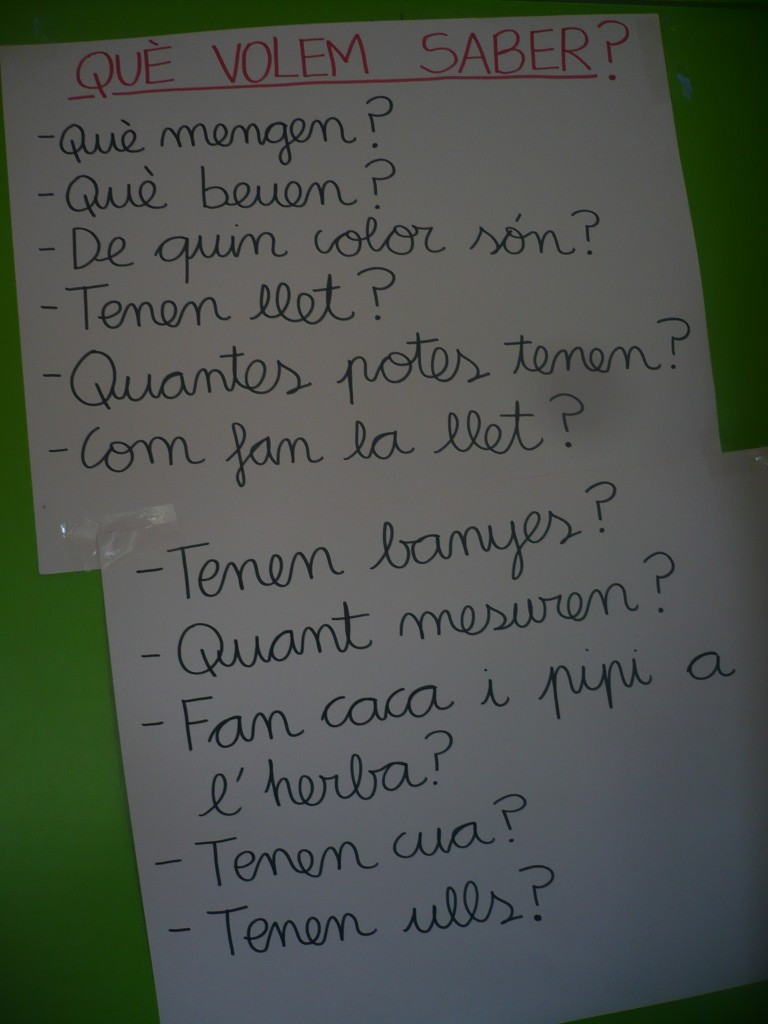 QUÈ VOLEM SABER?
-Què mengen?
-Què beuen?
-De quin color són?
-Tenen llet?
-Quantes potes tenen?
-Com fan la llet?
-Tenen banyes?
-Quant mesuren?
-Fan caca i pipi a
l'herba?
-Tenen cua?
-Tenen ulls?